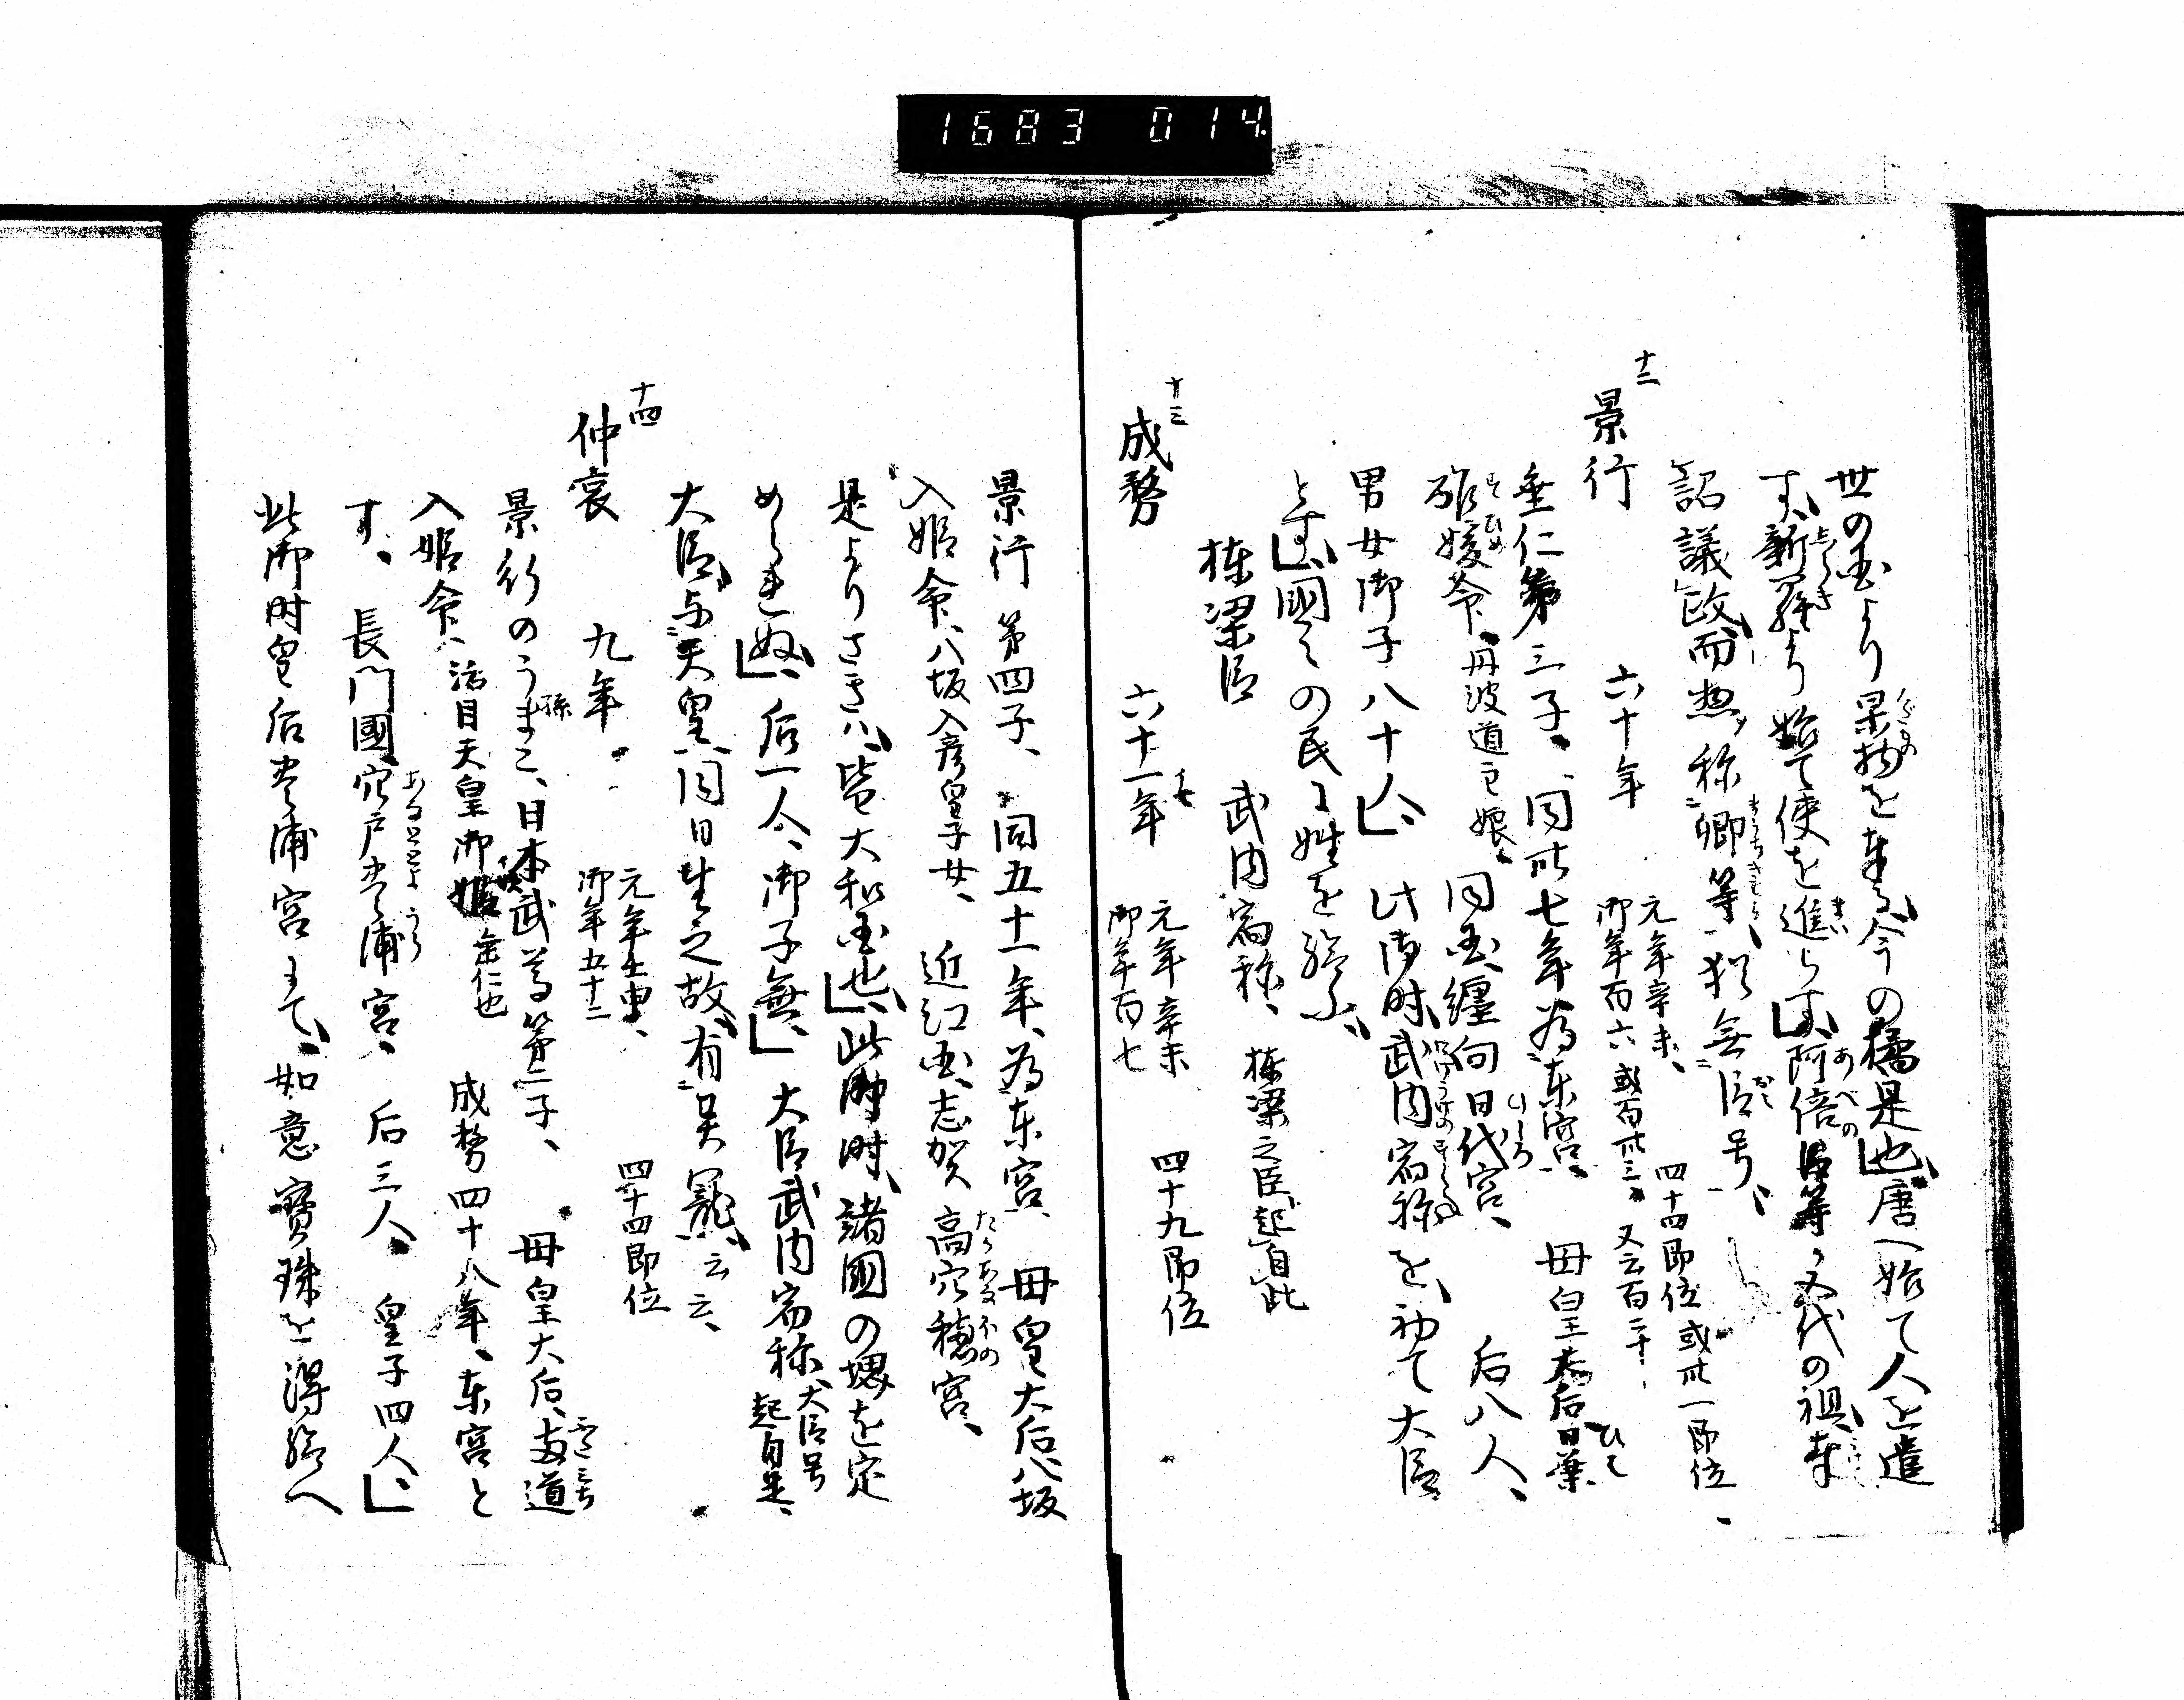 1683 014
世の国より果物を奉る、今の橘是也、唐へ始て人を遣
くだもの
す、新羅より始て使を進らす、阿倍臣等、五代の祖、奉
しらき
まい
あべの
詔議政、而惣称卿等、猶無臣号、
まうちきみ
十二
景行 六十年
元年辛未、 四十四即位 或卅一即位、
御年百六 或百卌三、又云百二十
垂仁第三子、同卅七年為東宮、 母皇太后日葉
ひは
酢媛命、丹波道主娘、同国纏向日代宮、 后八人、
すひめ
ひしろ
男女御子八十人、 此御時、武内宿祢を、初て大臣
とす、国々の民に姓を給ふ、
棟梁臣 武内宿祢、棟梁之臣、起自此
十三
成務 六十一年
元年辛未 四十九即位
御年百七
景行第四子、同五十一年、為東宮、 母皇大后八坂
入姫命、八坂入彦皇子女、 近江国志賀高穴穂宮、
たかあなほの
是よりさきハ、皆大和国也、此御時、諸国の堺を定
められぬ、后一人、御子無、 大臣武内宿祢、大臣号
起自是、
大臣与天皇、同日生之故、有異寵云云、
十四
仲哀 九年
元年壬申、 四十四即位
御年五十二
景行のうまこ、日本武尊第二子、 母皇大后、両道
孫
ふたみち
入姫命、活目天皇御姫 垂仁也 成務四十八年、東宮と
す、 長門国穴戸豊浦宮、 后三人、 皇子四人、
あなとのとよら
此御時皇后豊浦宮にて、如意宝珠を得給へ